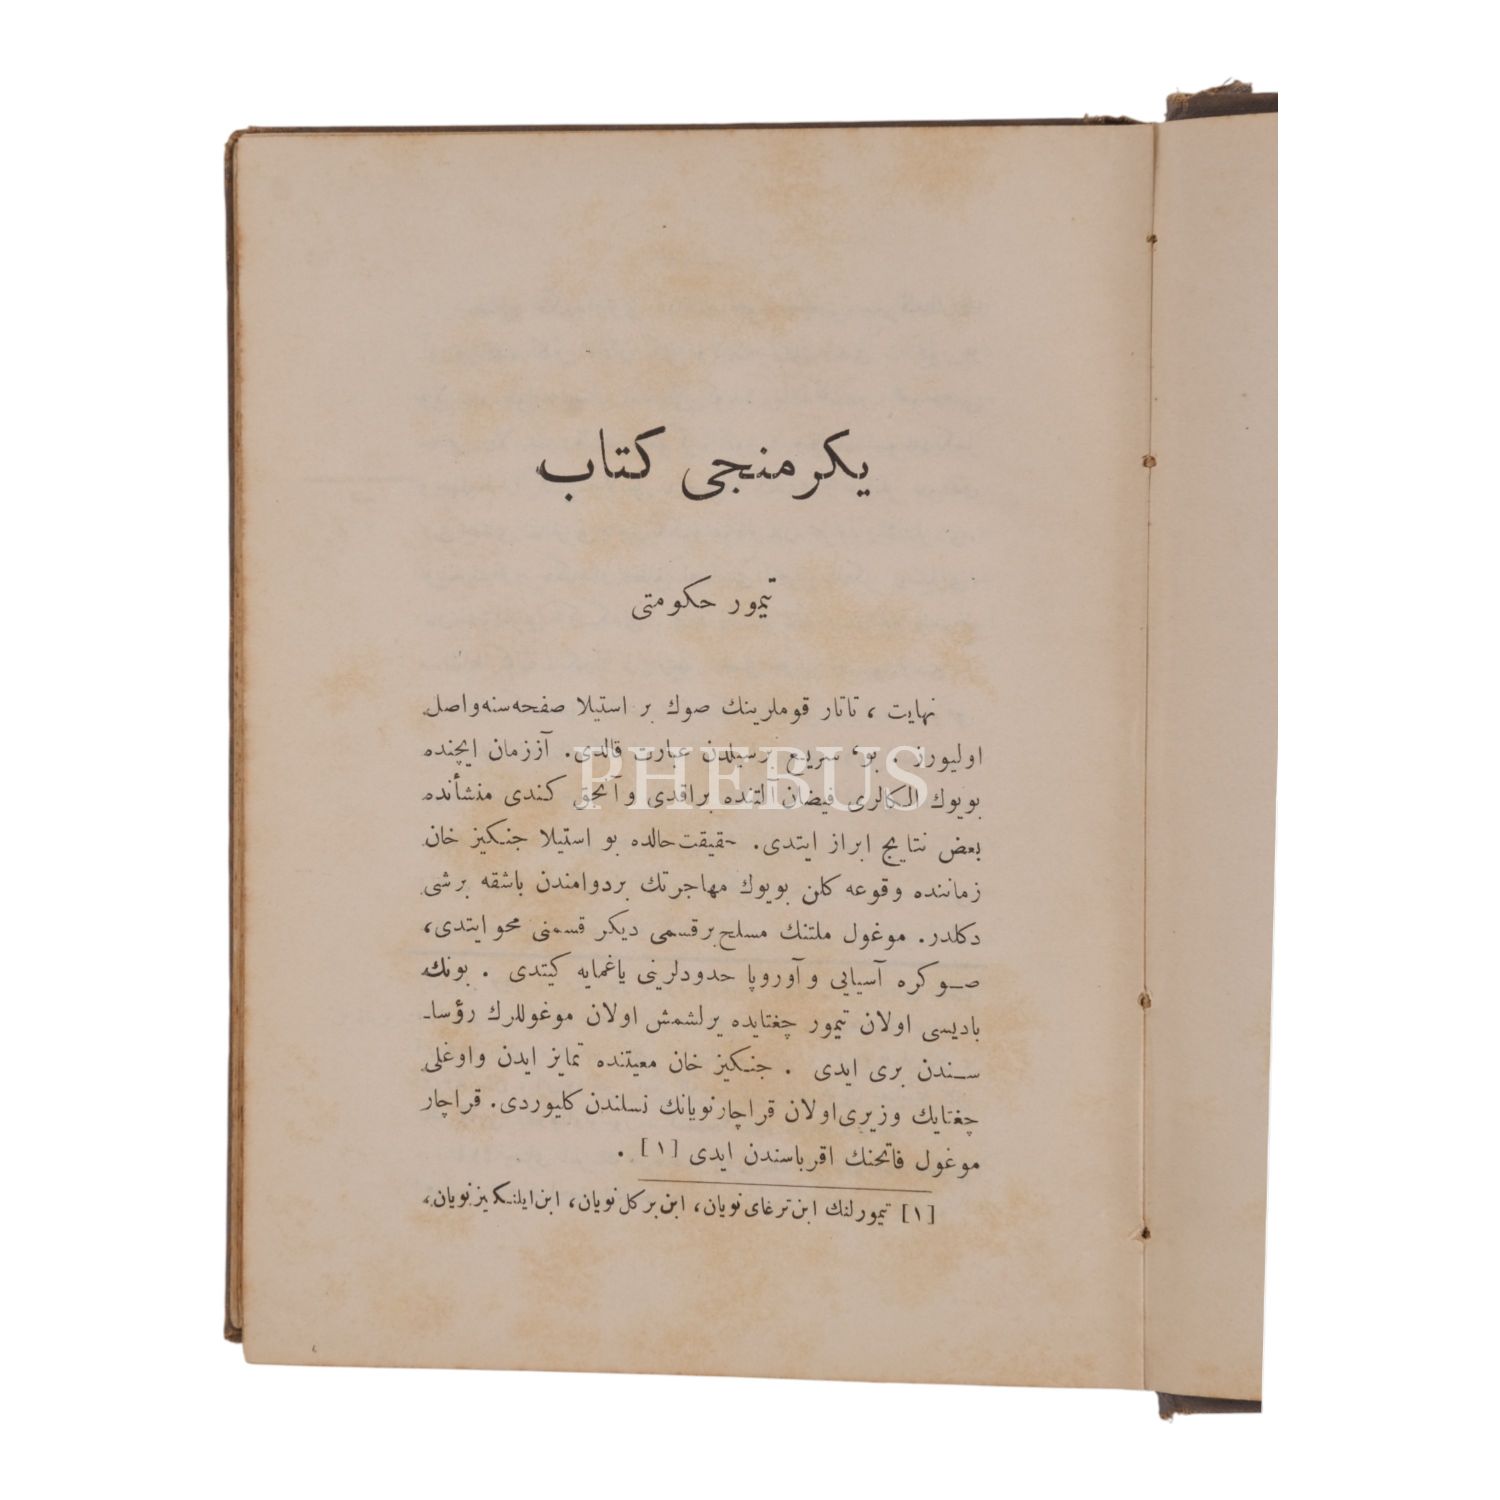 یکرمنجی کتاب
تیمور حکومتی
نهایت ، تاتار قوملرینك صوك بر استیلا صفحه‌سنه واصل
اولیورز . بو، سریع برسیلدن عبارت قالدی. آززمان ایچنده
PHEBUS
بویوك الکالری فیضان آلتنده براقدی و آنجق کندی منشأنده
بعض نتایج ابراز ایتدی. حقیقت حالده بو استیلا جنکیز خان
زماننده وقوعه کلن بویوك مهاجرتك بردوامندن باشقه برشی
دکلدر. موغول ملتنك مسلح برقسمی دیکر قسمنی محو ایتدی،
صوکره آسیایی و آوروپا حدودلرینی یاغمایه کیتدی . بونك
بادیسی اولان تیمور چغتایده یرلشمش اولان موغوللرك رؤسا-
سندن بری ایدی . جنکیز خان معیتنده تمایز ایدن و اوغلی
چغتایك وزیری اولان قراچارنویانك نسلندن کلیوردی. قراچار
موغول فاتحنك اقرباسندن ایدی [١] .
[١] تیمورلنك ابن ترغای نویان، ابن برکل نویان، ابن ایلنکیزنویان،